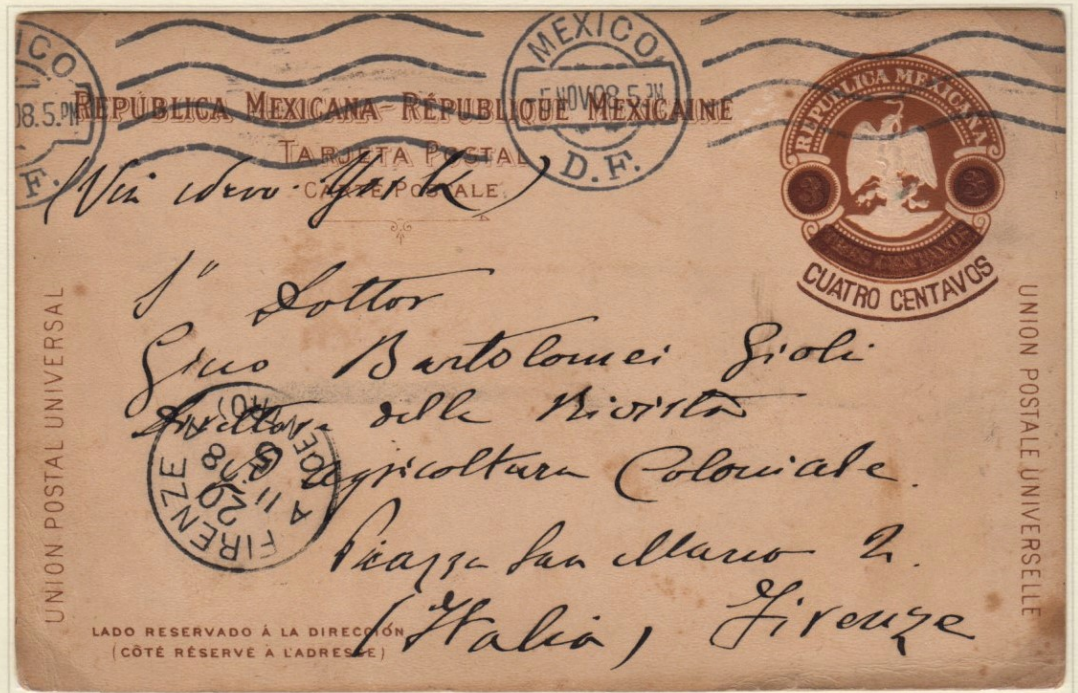 MEXICO
5 NOV 08. 5 PM
D. F.
ICO
08. 5. PM
F.
REPÚBLICA MEXICANA-RÉPUBLIQUE MEXICAINE
TARJETA POSTAL
CARTE POSTALE.
REPUBLICA MEXICANA
3 3
TRES CENTAVOS
CUATRO CENTAVOS
(Via New-York)
Sr Dottor
Gino Bartolomei Gioli
Direttore della Rivista
Agricoltura Coloniale.
Piazza San Marco 2.
(Italia) Firenze
FIRENZE
20
11 08
UNION POSTAL UNIVERSAL
UNION POSTALE UNIVERSELLE
LADO RESERVADO Á LA DIRECCIÓN
(CÔTÉ RÉSERVÉ A L'ADRESSE)